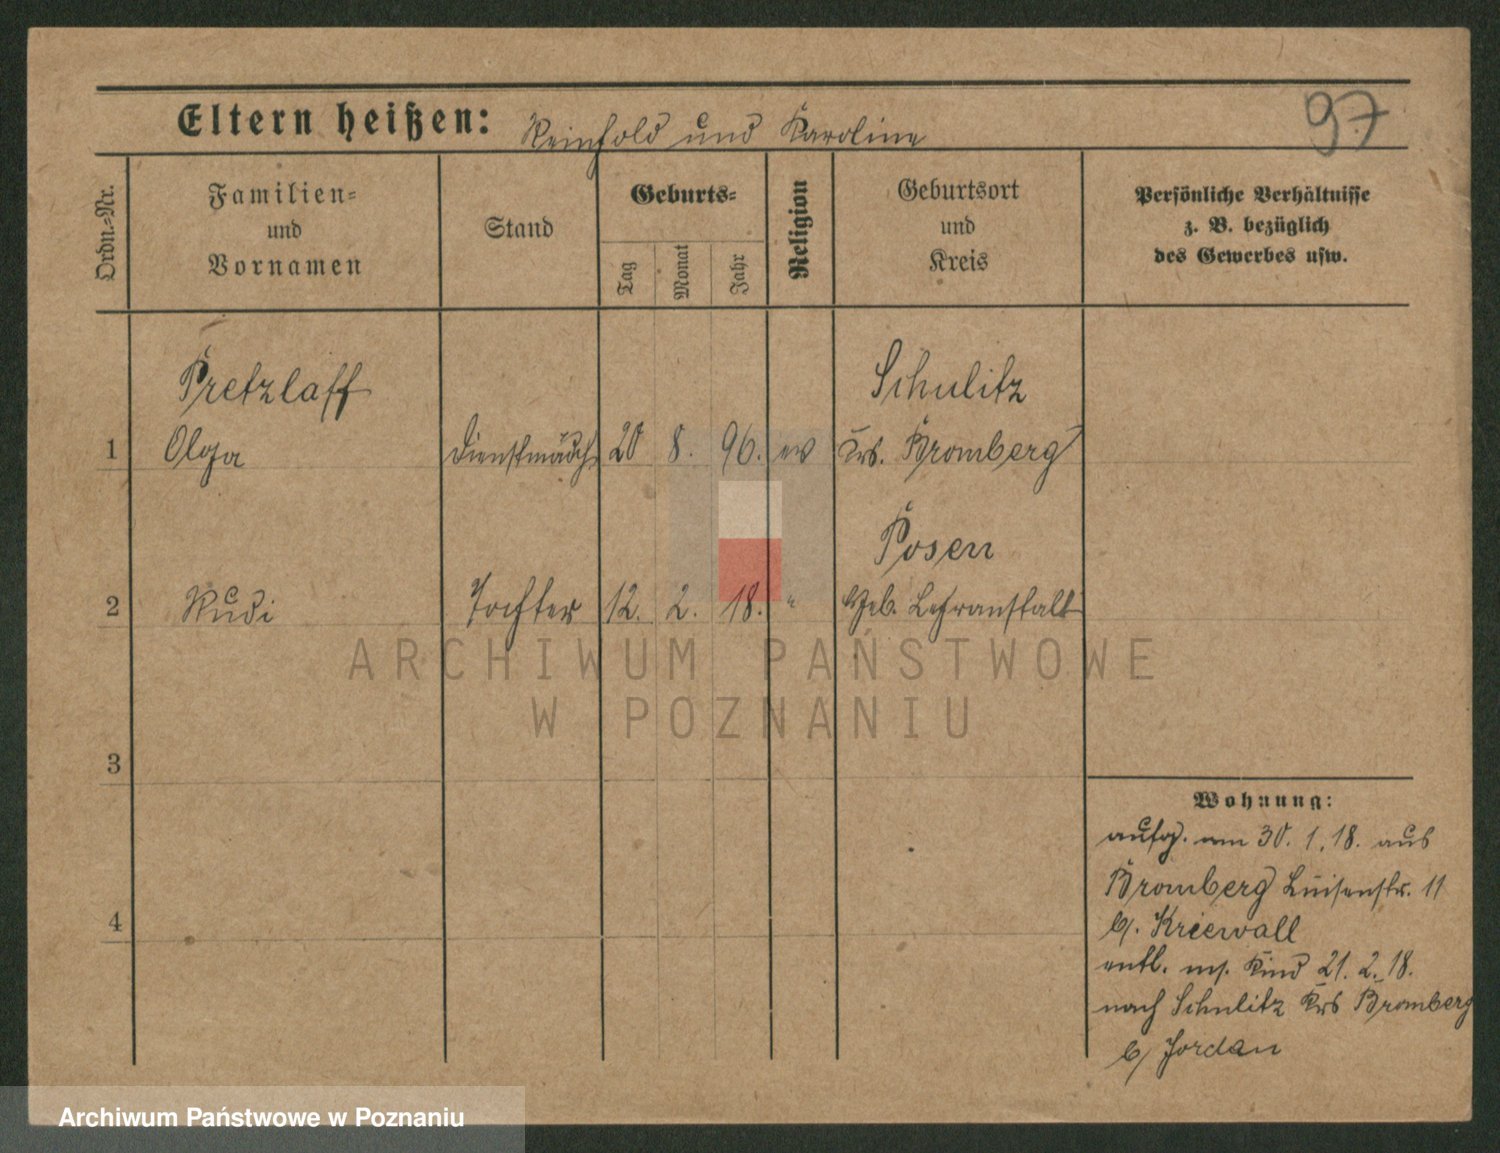 Eltern heißen: Reinhold und Karoline
97
Ordn.-Nr.
Familien-
und
Vornamen
Stand
Geburts-
Tag
Monat
Jahr
Religion
Geburtsort
und
Kreis
Persönliche Verhältnisse
z. B. bezüglich
des Gewerbes usw.
Pretzlaff
Schulitz
1 Olga Dienstmädch 20 8. 96. ev Krs. Bromberg
Posen
2 Rudi Tochter 12. 2. 18. " Heb. Lehranstalt
ARCHIWUM PAŃSTWOWE
W POZNANIU
3
4
Wohnung:
aufg. am 30. 1. 18. aus
Bromberg Luisenstr. 11
b/. Kriewall
entl. m/. Kind 21. 2. 18.
nach Schulitz Krs Bromberg
b/ Jordan
Archiwum Państwowe w Poznaniu